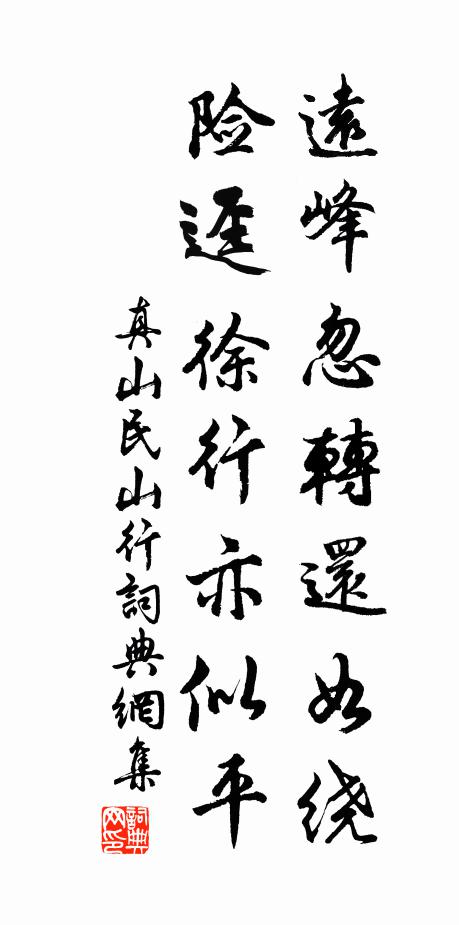 遠峰忽轉還如绕
险逕徐行亦似平
真山民山行詞典網集
詞典网印